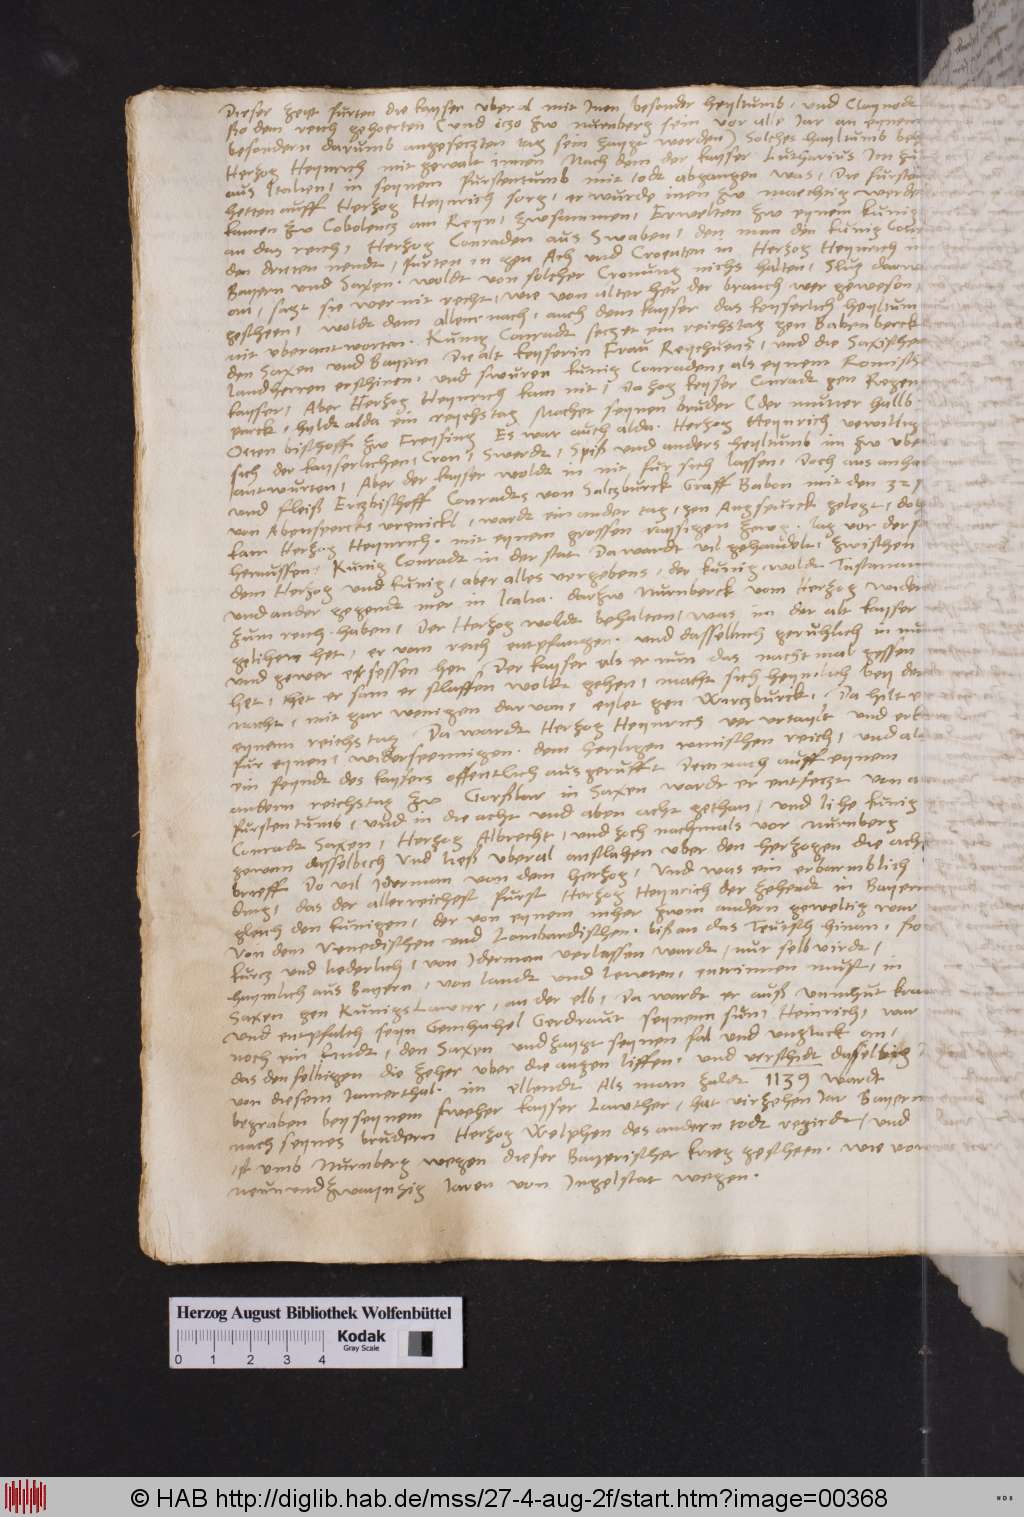 Dieser Zeyt furten die kayser uberal mit Inen besonder heyltumb, und Claynodt
so dem reich gehoerten (und itzo zw nurenberg sein vor alle Jar an eynem
besondern darumb angesetzten tag sein zaygt werden) Solches hayltumb
Herzog Heynrich mit gewalt innen Nach dem der kayser Lutharius Im
aus Italien, in seynem furstentumb mit todt abgangen was, Die fursten
hetten auff Herzog Heynrich sorg, er wurde inen zw maechtig werde
kamen zw Cobolencz am Reyn, zwsammen, Erwelten zw eynem kunig
an das reich, Herzog Conraden aus Swaben, den man den kunig
den dritten nendt, furten in gen Ach und Croenten in Herzog Heynrich in
Bayern und Saxen, woldt von solcher Cronung nichs halten, Slug darw
an, sagt sie wer nit recht, wie von alter her der brauch wer gewesen,
gescheen, woldt dem allem nach, auch dem kayser das keyserlich heyltum
nit uberantworten. Kunig Conradt seczet ein reichstag gen Babenberck
den Saxen und Bayern Die alt keyserin Frau Reychuens, und die Saxischen
landherren erschinen, und swuren kunig Conraden, als eynem Romisch
kayser, Aber Herzog Heynrich kam nit, Da zog keyser Conradt gen Regen
purck, hyldt alda ein reychstag Machet seynen bruder (der mutter halb
Otten bischoff zw Freysing Es war auch alda, Herzog Heynrich verwilligt
sich der kayserlichen, Cron, Swerdt, Spiß und anders heyltumb im zw ube
antwurten, Aber der kayser woldt in nit fur sich lassen, Doch aus anha
und fleiß Erczbischoff Conradts von Salczburck Graff Babon mit den 32
von Abensperchs urenickl, wardt ein ander tag, gen Augspurck gelegt, do
kam Herzog Heynrich, mit eynem grossen raysigen zewg, lag vor der
heraussen, Kunig Conradt in der stat Da wardt vil gehandelt, zwischen
dem Herzog und kunig, aber alles vergebens, der kunig woldt Tustaniam
und ander gegendt mer in Italia, darzw Nurnberck vom Herzog wider
zum reich haben, Der Herzog woldt behalten, was im der alt kayser
gelihen het, er vom reich entpfangen, und dasselbich geruhlich in nu
und gewer ersessen het, Der kayser als er nun das nachtmal gessen
het, thet er sam er slaffen woldt gehen, macht sich heymlich bey der
nacht, mit gar wenigen darvon, eylet gen Wirczburck, Da hilt e
eynem reichs tag, Da wardt Herzog Heynrich verurtaylt und erk
fur eynen, widerspennigen, dem heyligen romischen reich, und al
ein feyndt des kaysers offentlich ausgerufft Dernach auff eynem
andern reichstag zw Gosslar in Saxen wardt er entseczt von
furstentumb, und in die acht und aben acht gethan, und lihe kunig
Conradt Saxen, Herzog Albrecht, und zoch nachmals vor Nurnberg
gewan dasselbich Und ließ uberal anslahen uber den herzogen die ach
brieff Do vil Jderman von dem herzog, Und was ein erbarmblich
ding, das der allerreichest furst Herzog Heynrich der zehendt in Bayern
gleich den kunigen, der von eynem mher zwm andern geweltig war
Von dem Venedischen und Lombardischen, biß an das Teutsch hinan, so
kurcz und liederlich, von Jderman verlassen wardt, nur selb virdt,
haymlich aus Bayern, von landt und lewten, entrinnen must, in
Saxen gen Kunigs Lawter, an der elb, Da wardt er auß unmhut kran
und entpfalch seyn Gemhahel Gerdraut seynem sun, Heinrich, war
noch ein kindt, den Saxen und zaygt seynen fal und ungluck an,
das denselbigen die zeher uber die augen liffen, und verschidt dasselbig
von diesem Jamerthal, im ellendt Als man zaldt 1139 wardt
begraben bey seynem sweher kayser Lawther, hat virzehen Jar Bayern
nach seynes brudern Herzog Welphen des andern todt regirdt, und
ist umb Nurnberg wegen dieser Bayerischer krieg gescheen, wie vor
neunundzwaynzig Jaren von Ingelstat wegen.
Herzog August Bibliothek Wolfenbüttel
Kodak
Gray Scale
0 1 2 3 4
© HAB http://diglib.hab.de/mss/27-4-aug-2f/start.htm?image=00368